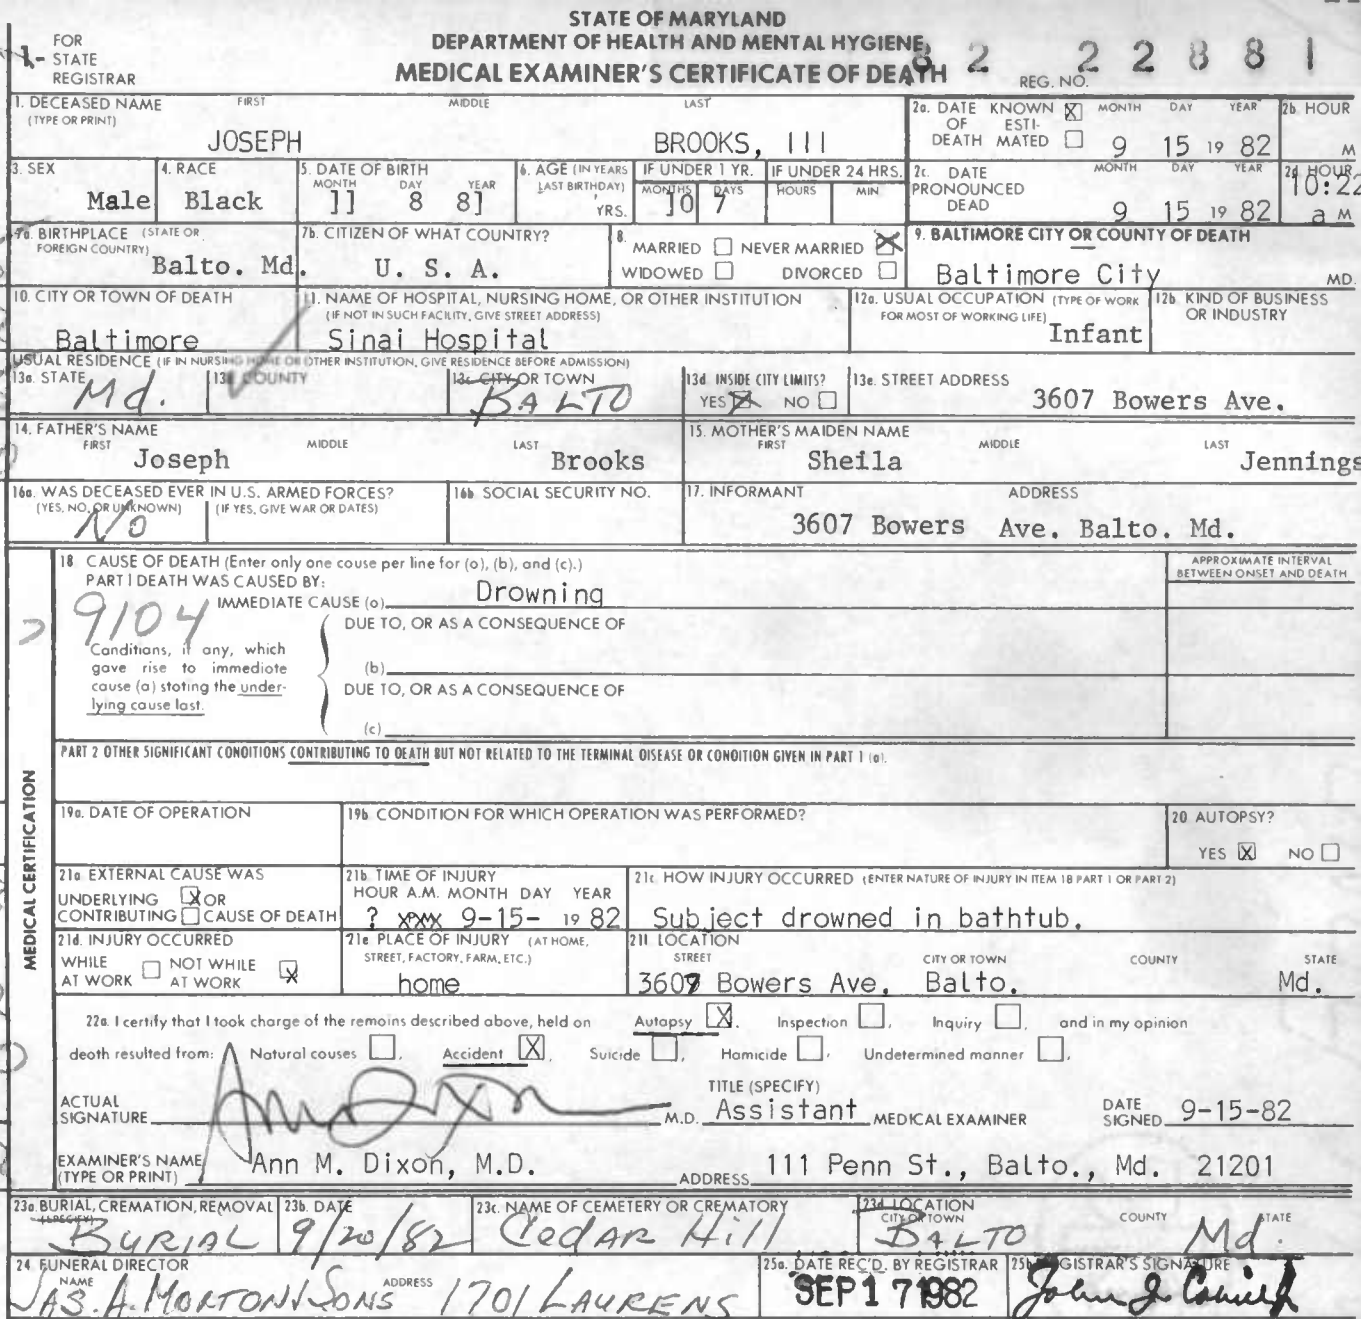 STATE OF MARYLAND
DEPARTMENT OF HEALTH AND MENTAL HYGIENE
MEDICAL EXAMINER'S CERTIFICATE OF DEATH
FOR
1- STATE
REGISTRAR
REG. NO. 82 22881
1. DECEASED NAME (TYPE OR PRINT) FIRST MIDDLE LAST
JOSEPH BROOKS, III
2a. DATE OF DEATH KNOWN X ESTIMATED MONTH DAY YEAR
9 15 19 82
2b. HOUR M
3. SEX
Male
4. RACE
Black
5. DATE OF BIRTH MONTH DAY YEAR
11 8 81
6. AGE (IN YEARS LAST BIRTHDAY) YRS.
IF UNDER 1 YR. MONTHS DAYS
10 7
IF UNDER 24 HRS. HOURS MIN
2c. DATE PRONOUNCED DEAD MONTH DAY YEAR
9 15 19 82
2d HOUR
10:22
a M
7a. BIRTHPLACE (STATE OR FOREIGN COUNTRY)
Balto. Md.
7b. CITIZEN OF WHAT COUNTRY?
U. S. A.
8. MARRIED NEVER MARRIED X
WIDOWED DIVORCED
9. BALTIMORE CITY OR COUNTY OF DEATH
Baltimore City MD.
10. CITY OR TOWN OF DEATH
Baltimore
11. NAME OF HOSPITAL, NURSING HOME, OR OTHER INSTITUTION
(IF NOT IN SUCH FACILITY, GIVE STREET ADDRESS)
Sinai Hospital
12a. USUAL OCCUPATION (TYPE OF WORK FOR MOST OF WORKING LIFE)
Infant
12b. KIND OF BUSINESS OR INDUSTRY
USUAL RESIDENCE (IF IN NURSING HOME OR OTHER INSTITUTION, GIVE RESIDENCE BEFORE ADMISSION)
13a. STATE
Md.
13b COUNTY
13c CITY OR TOWN
BALTO
13d. INSIDE CITY LIMITS?
YES X NO
13e. STREET ADDRESS
3607 Bowers Ave.
14. FATHER'S NAME FIRST MIDDLE LAST
Joseph Brooks
15. MOTHER'S MAIDEN NAME FIRST MIDDLE LAST
Sheila Jennings
16a. WAS DECEASED EVER IN U.S. ARMED FORCES?
(YES, NO, OR UNKNOWN) (IF YES, GIVE WAR OR DATES)
No
16b. SOCIAL SECURITY NO.
17. INFORMANT ADDRESS
3607 Bowers Ave. Balto. Md.
MEDICAL CERTIFICATION
18 CAUSE OF DEATH (Enter only one cause per line for (a), (b), and (c).)
PART I DEATH WAS CAUSED BY:
APPROXIMATE INTERVAL BETWEEN ONSET AND DEATH
IMMEDIATE CAUSE (a) Drowning
9104
DUE TO, OR AS A CONSEQUENCE OF
Conditions, if any, which gave rise to immediate cause (a) stating the underlying cause last.
(b)
DUE TO, OR AS A CONSEQUENCE OF
(c)
PART 2 OTHER SIGNIFICANT CONDITIONS CONTRIBUTING TO DEATH BUT NOT RELATED TO THE TERMINAL DISEASE OR CONDITION GIVEN IN PART 1 (a).
19a. DATE OF OPERATION
19b. CONDITION FOR WHICH OPERATION WAS PERFORMED?
20 AUTOPSY?
YES X NO
21a EXTERNAL CAUSE WAS
UNDERLYING X OR
CONTRIBUTING CAUSE OF DEATH
21b TIME OF INJURY
HOUR A.M. MONTH DAY YEAR
? 9-15- 19 82
21c HOW INJURY OCCURRED (ENTER NATURE OF INJURY IN ITEM 18 PART 1 OR PART 2)
Subject drowned in bathtub.
21d. INJURY OCCURRED
WHILE AT WORK NOT WHILE AT WORK X
21e PLACE OF INJURY (AT HOME, STREET, FACTORY, FARM, ETC.)
home
21f LOCATION
STREET CITY OR TOWN COUNTY STATE
3607 Bowers Ave. Balto. Md.
22a. I certify that I took charge of the remains described above, held on Autopsy X. Inspection, Inquiry, and in my opinion
death resulted from: Natural causes, Accident X, Suicide, Homicide, Undetermined manner.
ACTUAL SIGNATURE Ann Dixon M.D.
TITLE (SPECIFY)
Assistant MEDICAL EXAMINER
DATE SIGNED 9-15-82
EXAMINER'S NAME (TYPE OR PRINT) Ann M. Dixon, M.D.
ADDRESS 111 Penn St., Balto., Md. 21201
23a. BURIAL, CREMATION, REMOVAL (SPECIFY)
BURIAL
23b. DATE
9/20/82
23c. NAME OF CEMETERY OR CREMATORY
Cedar Hill
23d LOCATION
CITY OR TOWN COUNTY STATE
BALTO Md.
24 FUNERAL DIRECTOR
NAME ADDRESS
JAS. A. MORTON & SONS 1701 LAURENS
25a. DATE REC'D. BY REGISTRAR
SEP 17 1982
25b REGISTRAR'S SIGNATURE